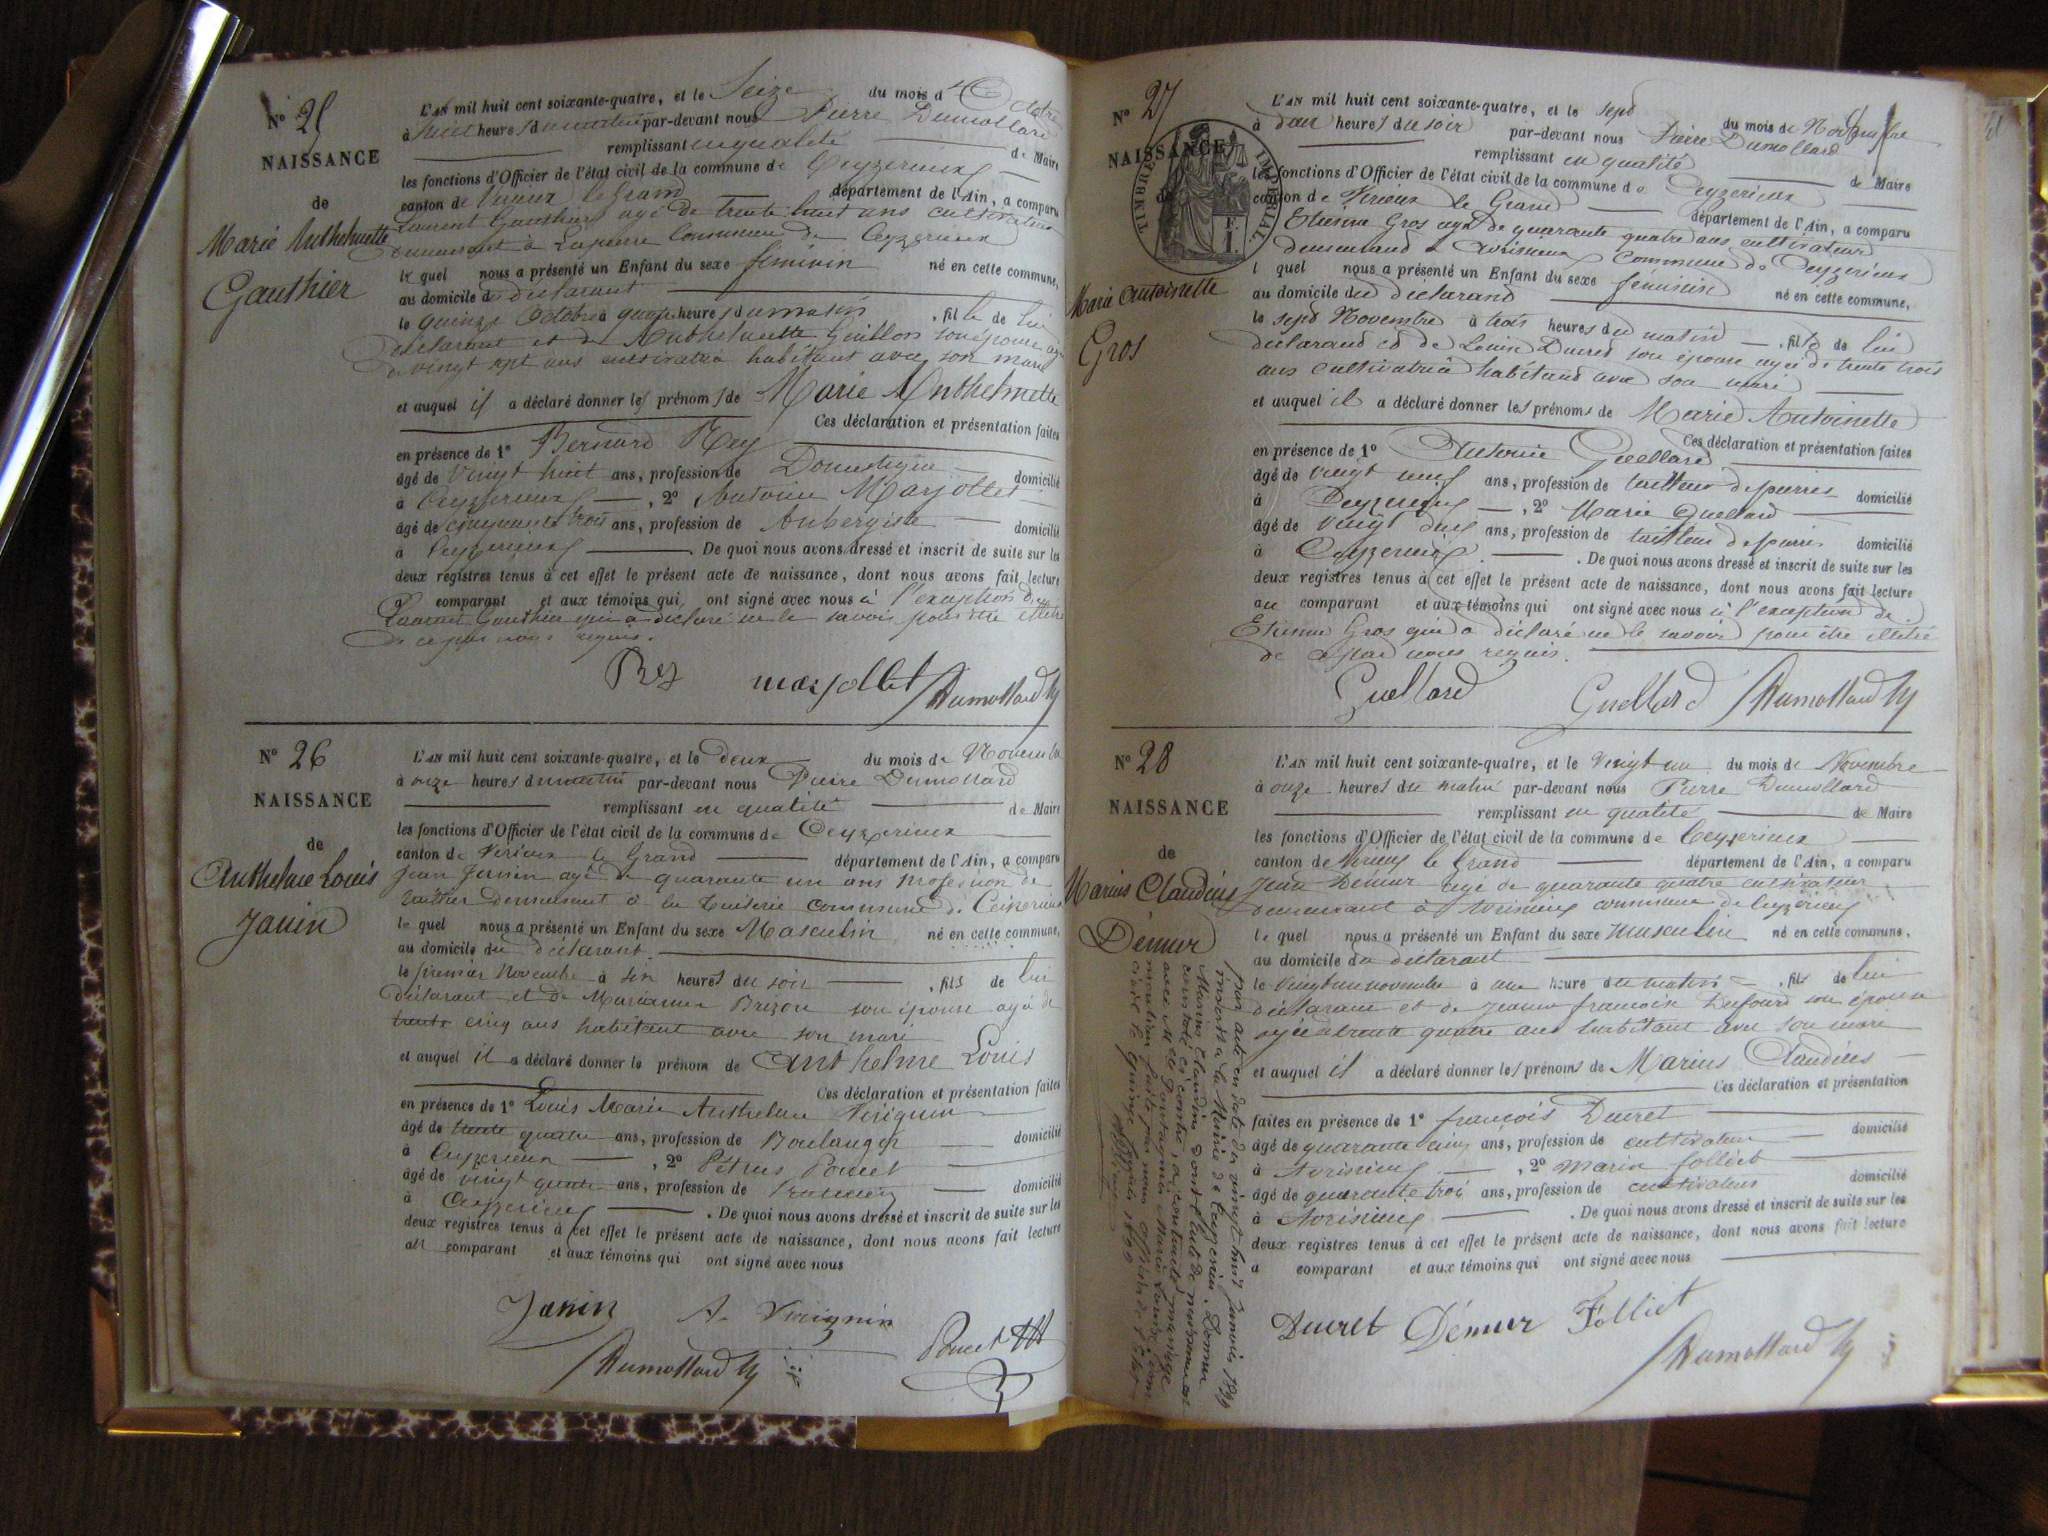 N° 25
NAISSANCE
de
Marie Anthelmette
Gauthier
L'AN mil huit cent soixante-quatre, et le Seize du mois d'Octobre
à huit heures du matin par-devant nous Pierre Dumollard
remplissant en qualité de Maire
les fonctions d'Officier de l'état civil de la commune de Ceyzerieux
canton de Virieux le Grand département de l'Ain, a comparu
Laurent Gauthier agé de trente huit ans cultivateur
demeurant à Lapierre Commune de Ceyzerieux
le quel nous a présenté un Enfant du sexe féminin né en cette commune,
au domicile du déclarant
le quinze Octobre à heures du matin, fille de lui
déclarant et de Anthelmette Guillon son épouse agée
de vingt sept ans cultivatrice habitant avec son mari
et auquel il a déclaré donner les prénoms de Marie Anthelmette
Ces déclaration et présentation faites
en présence de 1° Bernard Rey
âgé de vingt huit ans, profession de Domestique domicilié
à Ceyzerieux, 2° Antoine Marjollet
âgé de cinquante trois ans, profession de Aubergiste domicilié
à Ceyzerieux. De quoi nous avons dressé et inscrit de suite sur les
deux registres tenus à cet effet le présent acte de naissance, dont nous avons fait lecture
a comparant et aux témoins qui ont signé avec nous à l'exception de
Laurent Gauthier qui a déclaré ne le savoir pour être illétré
de ce par nous requis.
Rey marjollet Dumollard
N° 26
NAISSANCE
de
Anthelme Louis
Janin
L'AN mil huit cent soixante-quatre, et le deux du mois de Novembre
à onze heures du matin par-devant nous Pierre Dumollard
remplissant en qualité de Maire
les fonctions d'Officier de l'état civil de la commune de Ceyzerieux
canton de Virieux le Grand département de l'Ain, a comparu
Jean Janin agé de quarante un ans profession de
demeurant à la Tuilerie commune de Ceizerieux
le quel nous a présenté un Enfant du sexe Masculin né en cette commune,
au domicile du déclarant
le premier Novembre à six heures du soir, fils de lui
déclarant et de Marianne Brizon son épouse agé de
trente cinq ans habitant avec son mari
et auquel il a déclaré donner le prénom de Anthelme Louis
Ces déclaration et présentation faites
en présence de 1° Louis Marie Anthelme
âgé de trente quatre ans, profession de Boulanger domicilié
à Ceyzerieux, 2° Pétrus Poncet
âgé de vingt quatre ans, profession de domicilié
à Ceyzerieux. De quoi nous avons dressé et inscrit de suite sur les
deux registres tenus à cet effet le présent acte de naissance, dont nous avons fait lecture
au comparant et aux témoins qui ont signé avec nous
Janin A. Poncet
Dumollard
N° 27
NAISSANCE
de
TIMBRE IMPERIAL
F. 1
Marie Antoinette
Gros
L'AN mil huit cent soixante-quatre, et le sept du mois de Novembre
à deux heures du soir par-devant nous Pierre Dumollard
remplissant en qualité de Maire
les fonctions d'Officier de l'état civil de la commune de Ceyzerieux
canton de Virieux le Grand département de l'Ain, a comparu
Etienne Gros agé de quarante quatre ans cultivateur
demeurand à Avrisieux Commune de Ceyzerieux
l quel nous a présenté un Enfant du sexe féminin né en cette commune,
au domicile du déclarand
le sept Novembre à trois heures du matin, fille de lui
déclarand et de Louise Ducret son épouse agée de trente trois
ans cultivatrice habitand avec son mari
et auquel il a déclaré donner les prénoms de Marie Antoinette
Ces déclaration et présentation faites
en présence de 1° Antoine Guellard
âgé de vingt neuf ans, profession de tailleur de pierres domicilié
à Ceyzerieux, 2° Marie Guellard
âgé de vingt ans, profession de tailleur de pierres domicilié
à Ceyzerieux. De quoi nous avons dressé et inscrit de suite sur les
deux registres tenus à cet effet le présent acte de naissance, dont nous avons fait lecture
au comparant et aux témoins qui ont signé avec nous à l'exception de
Etienne Gros qui a déclaré ne le savoir pour être illetré
de ce par nous requis.
Guellard Guellard Dumollard
N° 28
NAISSANCE
de
Marius Claudius
Démur
L'AN mil huit cent soixante-quatre, et le Vingt un du mois de Novembre
à onze heures du matin par-devant nous Pierre Dumollard
remplissant en qualité de Maire
les fonctions d'Officier de l'état civil de la commune de Ceyzerieux
canton de Virieux le Grand département de l'Ain, a comparu
Jean Démur agé de quarante quatre cultivateur
demeurant à Avrisieux commune de Ceyzérieux
le quel nous a présenté un Enfant du sexe masculin né en cette commune,
au domicile du déclarant
le vingt un novembre à une heure du matin, fils de lui
déclarant et de Jeanne françoise Dufourd son épouse
agée de trente quatre ans habitant avec son mari
et auquel il a déclaré donner les prénoms de Marius Claudius
Ces déclaration et présentation
faites en présence de 1° françois Ducret
âgé de quarante cinq ans, profession de cultivateur domicilié
à Avrisieux, 2° Marin folliet
âgé de quarante trois ans, profession de cultivateur domicilié
à Avrisieux. De quoi nous avons dressé et inscrit de suite sur les
deux registres tenus à cet effet le présent acte de naissance, dont nous avons fait lecture
a comparant et aux témoins qui ont signé avec nous
Ducret Démur Folliet
Dumollard
par acte en date du vingt huit janvier 1899
inscrit à la Mairie de Ceyzerieu, Démur
Marius Claudius dont l'acte de naissance est
ci contre, a contracté mariage
avec Marie